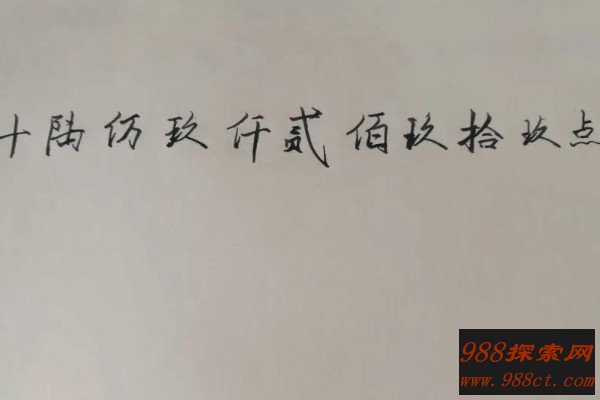 十陆仿玖仟贰佰玖拾玖点
988探索网
www.988ct.com